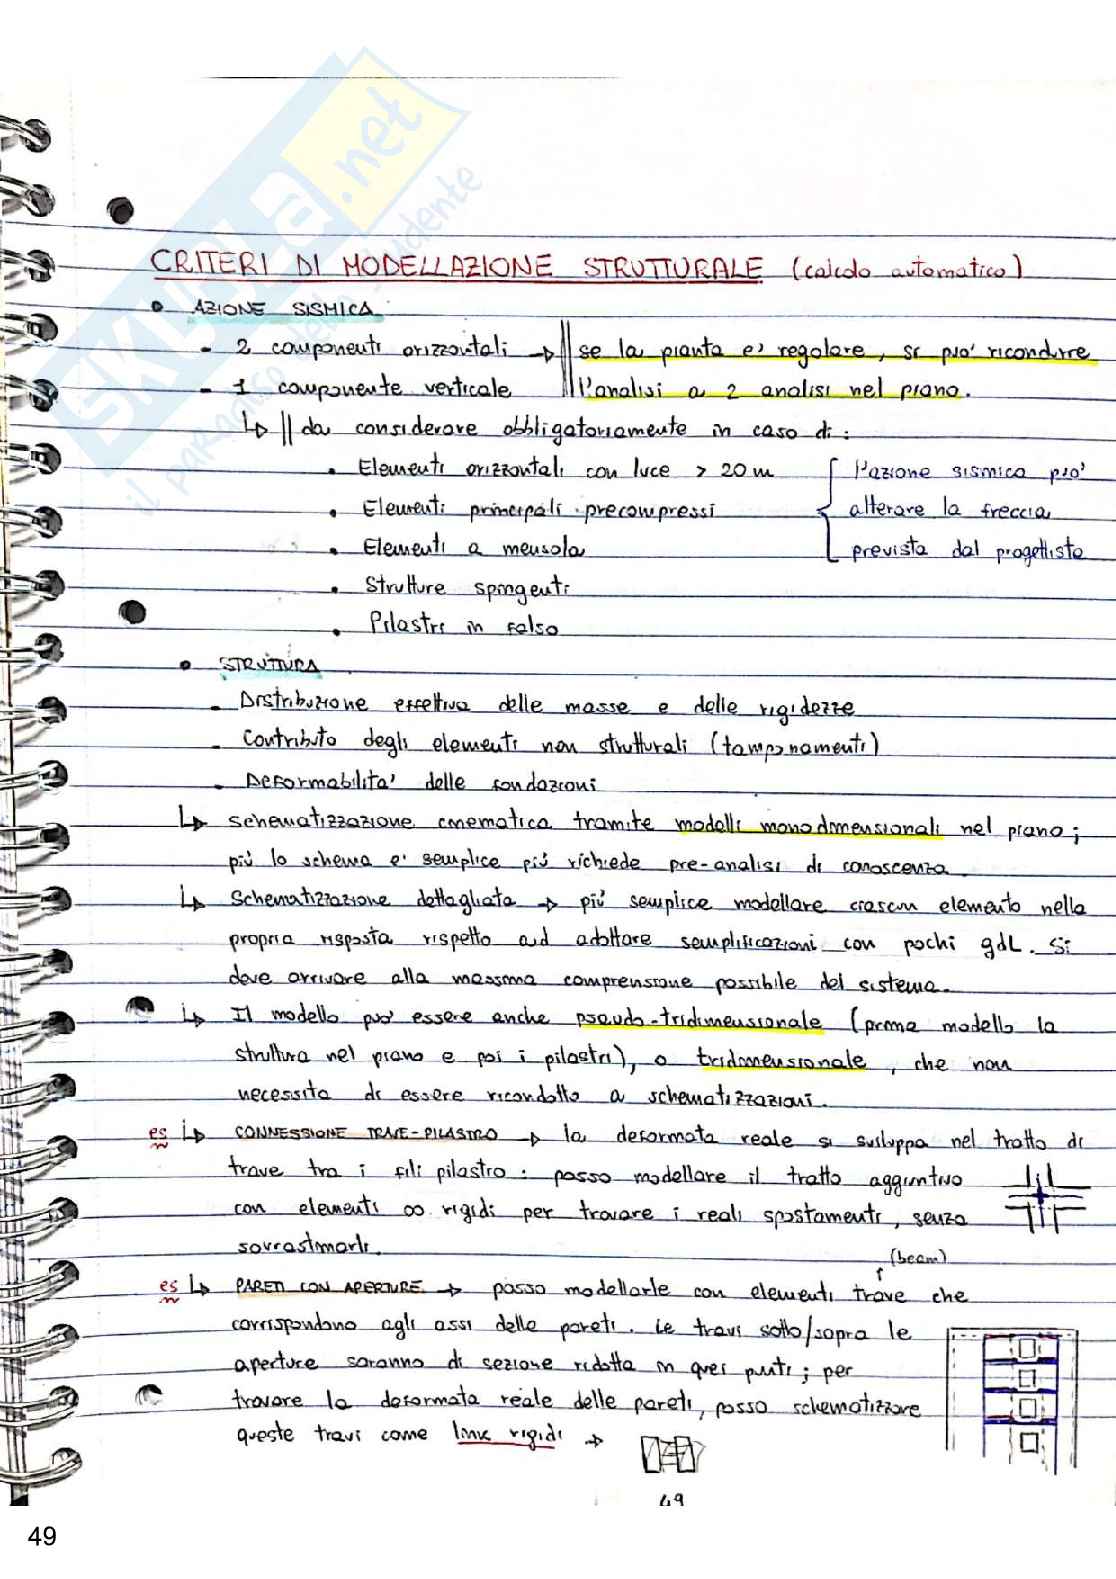 CRITERI DI MODELLAZIONE STRUTTURALE (calcolo automatico)
• AZIONE SISMICA
- 2 componenti orizzontali → se la pianta e' regolare, si può ricondurre
- 1 componente verticale l'analisi a 2 analisi nel piano.
↳ da considerare obbligatoriamente in caso di:
• Elementi orizzontali con luce > 20 m { l'azione sismica può'
• Elementi principali precompressi alterare la freccia
• Elementi a mensola prevista dal progettista
• Strutture spingenti
• Pilastri in falso
• STRUTTURA
- Distribuzione effettiva delle masse e delle rigidezze
- Contributo degli elementi non strutturali (tamponamenti)
- Deformabilita' delle fondazioni
↳ schematizzazione cinematica tramite modelli monodimensionali nel piano;
più lo schema e' semplice più richiede pre-analisi di conoscenza.
↳ Schematizzazione dettagliata → più semplice modellare ciascun elemento nella
propria risposta rispetto ad adottare semplificazioni con pochi gdL. Si
deve arrivare alla massima comprensione possibile del sistema.
↳ Il modello può essere anche pseudo-tridimensionale (prima modello la
struttura nel piano e poi i pilastri), o tridimensionale, che non
necessita di essere ricondotto a schematizzazioni.
es ↳ CONNESSIONE TRAVE-PILASTRO → la deformata reale si sviluppa nel tratto di
trave tra i fili pilastro: posso modellare il tratto aggiuntivo
con elementi ∞ rigidi per trovare i reali spostamenti, senza
sovrastimarli.
(beam)
es ↳ PARETI CON APERTURE → posso modellarle con elementi trave che
corrispondano agli assi delle pareti. Le travi sotto/sopra le
aperture saranno di sezione ridotta in quei punti; per
trovare la deformata reale delle pareti, posso schematizzare
queste travi come link rigidi →
49
49
SKUOLA.net
il paradiso dello studente